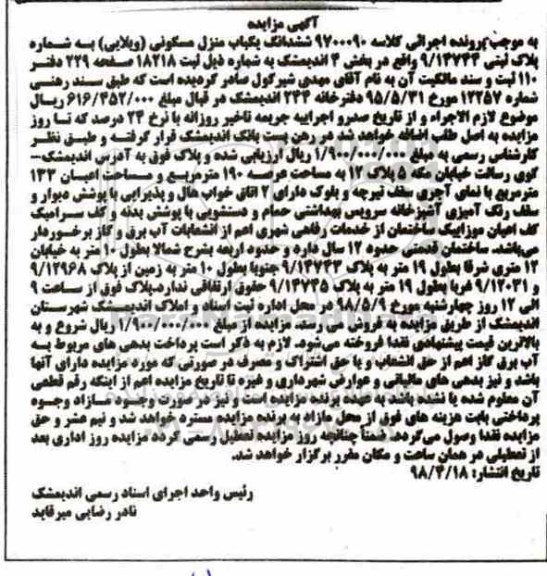 آگهی مزایده
به موجب پرونده اجرائی کلاسه ۹۷۰۰۰۹۰ ششدانگ یکباب منزل مسکونی (ویلایی) به شماره
پلاک ثبتی ۹/۱۳۷۴۴ واقع در بخش ۴ اندیمشک به شماره ذیل ثبت ۱۸۲۱۸ صفحه ۲۲۹ دفتر
۱۱۰ ثبت و سند مالکیت آن به نام آقای مهدی شیرگول صادر گردیده است که طبق سند رهنی
شماره ۱۲۲۵۷ مورخ ۹۵/۵/۳۱ دفترخانه ۲۴۴ اندیمشک در قبال مبلغ ۶۱۶/۴۵۲/۰۰۰ ریال
موضوع لازم الاجراء و از تاریخ صدور اجراییه جریمه تاخیر روزانه با نرخ ۲۴ درصد که تا روز
مزایده به اصل طلب اضافه خواهد شد در رهن پست بانک اندیمشک قرار گرفته و طبق نظر
کارشناس رسمی به مبلغ ۱/۹۰۰/۰۰۰/۰۰۰ ریال ارزیابی شده و پلاک فوق به آدرس اندیمشک-
کوی رسالت خیابان مکه ۵ پلاک ۱۲ به مساحت عرصه ۱۹۰ مترمربع و مساحت اعیان ۱۳۳
مترمربع با نمای آجری سقف تیرچه و بلوک دارای ۲ اتاق خواب هال و پذیرایی با پوشش دیوار و
سقف رنگ آمیزی آشپزخانه سرویس بهداشتی حمام و دستشویی با پوشش بدنه و کف سرامیک
کف اعیان موزاییک ساختمان از خدمات رفاهی شهری اعم از انشعابات آب برق و گاز برخوردار
میباشد. ساختمان قدمتی حدود ۱۲ سال دارد و حدود اربعه بشرح شمالا بطول ۱۰ متر به خیابان
۱۲ متری شرقا بطول ۱۹ متر به پلاک ۹/۱۳۷۴۳ جنوبا بطول ۱۰ متر به زمین از پلاک ۹/۱۲۹۶۸
و ۹/۱۲۰۳۱ غربا بطول ۱۹ متر به پلاک ۹/۱۳۷۴۵ حقوق ارتفاقی ندارد.پلاک فوق از ساعت ۹
الی ۱۲ روز چهارشنبه مورخ ۹۸/۵/۹ در محل اداره ثبت اسناد و املاک اندیمشک شهرستان
اندیمشک از طریق مزایده به فروش می رسد. مزایده از مبلغ ۱/۹۰۰/۰۰۰/۰۰۰ ریال شروع و به
بالاترین قیمت پیشنهادی نقدا فروخته می‌شود. لازم به ذکر است پرداخت بدهی های مربوط به
آب برق گاز اعم از حق انشعاب و یا حق اشتراک و مصرف در صورتی که مورد مزایده دارای آنها
باشد و نیز بدهی های مالیاتی و عوارض شهرداری و غیره تا تاریخ مزایده اعم از اینکه رقم قطعی
آن معلوم شده یا نشده باشد به عهده برنده مزایده است و نیز در صورت وجود مازاد وجوه
پرداختی بابت هزینه های فوق از محل مازاد به برنده مزایده مسترد خواهد شد و نیم عشر و حق
مزایده نقدا وصول می‌گردد. ضمنا چنانچه روز مزایده تعطیل رسمی گردد مزایده روز اداری بعد
از تعطیلی در همان ساعت و مکان مقرر برگزار خواهد شد.
تاریخ انتشار: ۹۸/۴/۱۸
رئیس واحد اجرای اسناد رسمی اندیمشک
نادر رضایی میرقاید